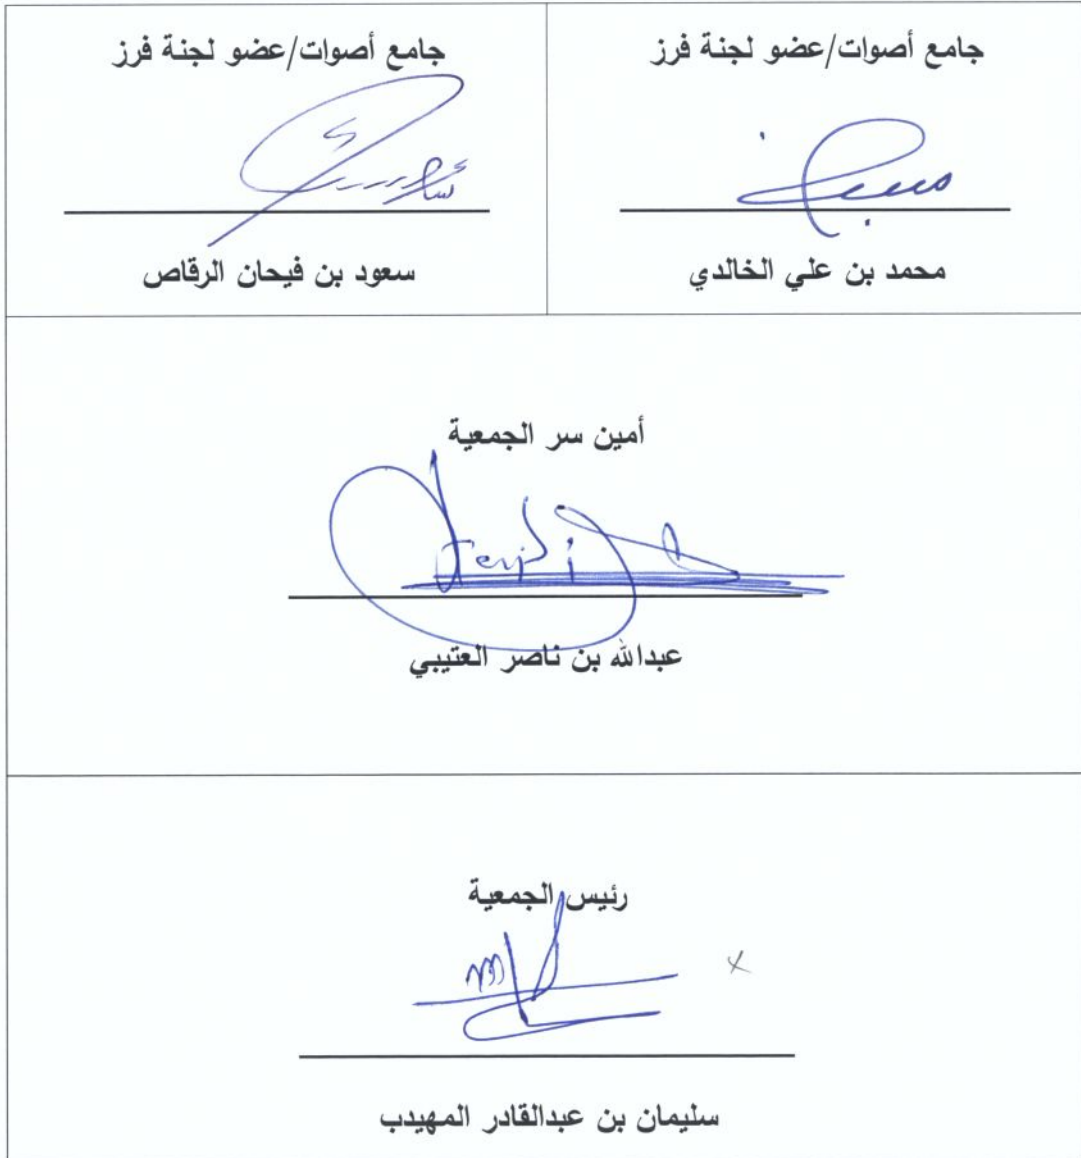 جامع أصوات/عضو لجنة فرز
محمد بن علي الخالدي
جامع أصوات/عضو لجنة فرز
سعود بن فيحان الرقاص
أمين سر الجمعية
عبدالله بن ناصر العتيبي
رئيس الجمعية
سليمان بن عبدالقادر المهيدب